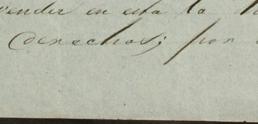 vender en esta la
derechos; por